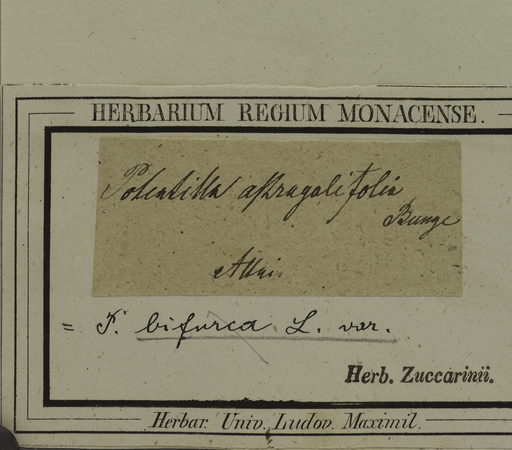 HERBARIUM REGIUM MONACENSE.
Potentilla astragalifolia
Bunge
Altai.
= P. bifurca L. var.
Herb. Zuccarinii.
Herbar. Univ. Ludov. Maximil.